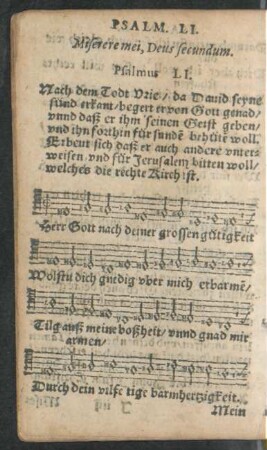 PSALM. LI.
Miserere mei, Deus secundum.
Psalmus LI.
Nach dem Todt Vrie/ da Dauid seyne
sünd erkant/ begert er von Gott genad/
vnnd daß er ihm seinen Geist geben/
vnd ihn forthin für sunde behüte woll.
Erbeut sich daß er auch andere vnter-
weisen/ vnd für Jerusalem bitten woll/
welches die rechte Kirch ist.
Herr Gott nach deiner grossen gütigkeit
Wolstu dich gnedig vber mich erbarmē/
Tilg auß meine boßheit/ vnnd gnad mir
armen/
Durch dein vilfeltige barmhertzigkeit.
Mein